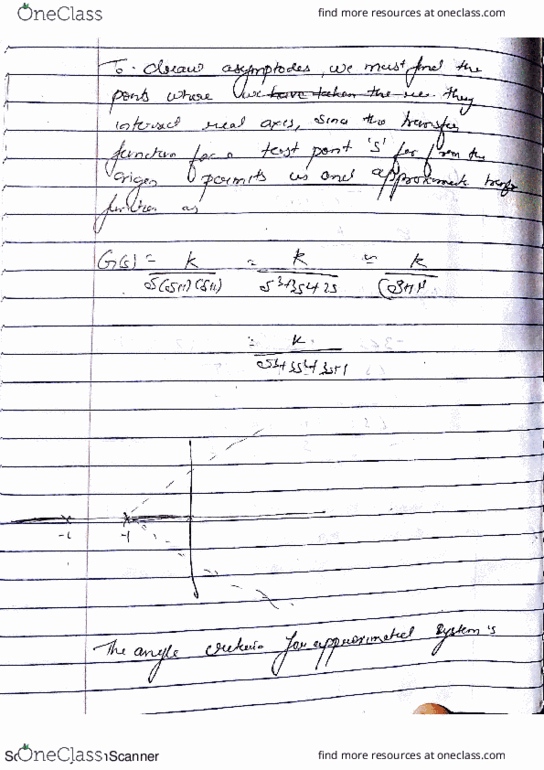 OneClass
find more resources at oneclass.com
To draw asymptodes, we must find the
point where we have taken the they
intersect real axis, since the transfer
function for a test point 'S' far from the
origin permits us and approximate
function as
G(s) = k / s(s+1)(s+1) = k / s³+3s²+2s ≈ k / (s+1)³
= k / s³+3s²+3s+1
-1
The angle criteria for approximated system is
OneClass Scanner
find more resources at oneclass.com